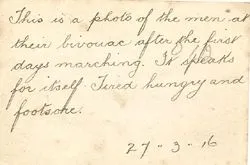 This is a photo of the men at
their bivouac after the first
days marching. It speaks
for itself. Tired hungry and
footsore.
27 - 3 - 16